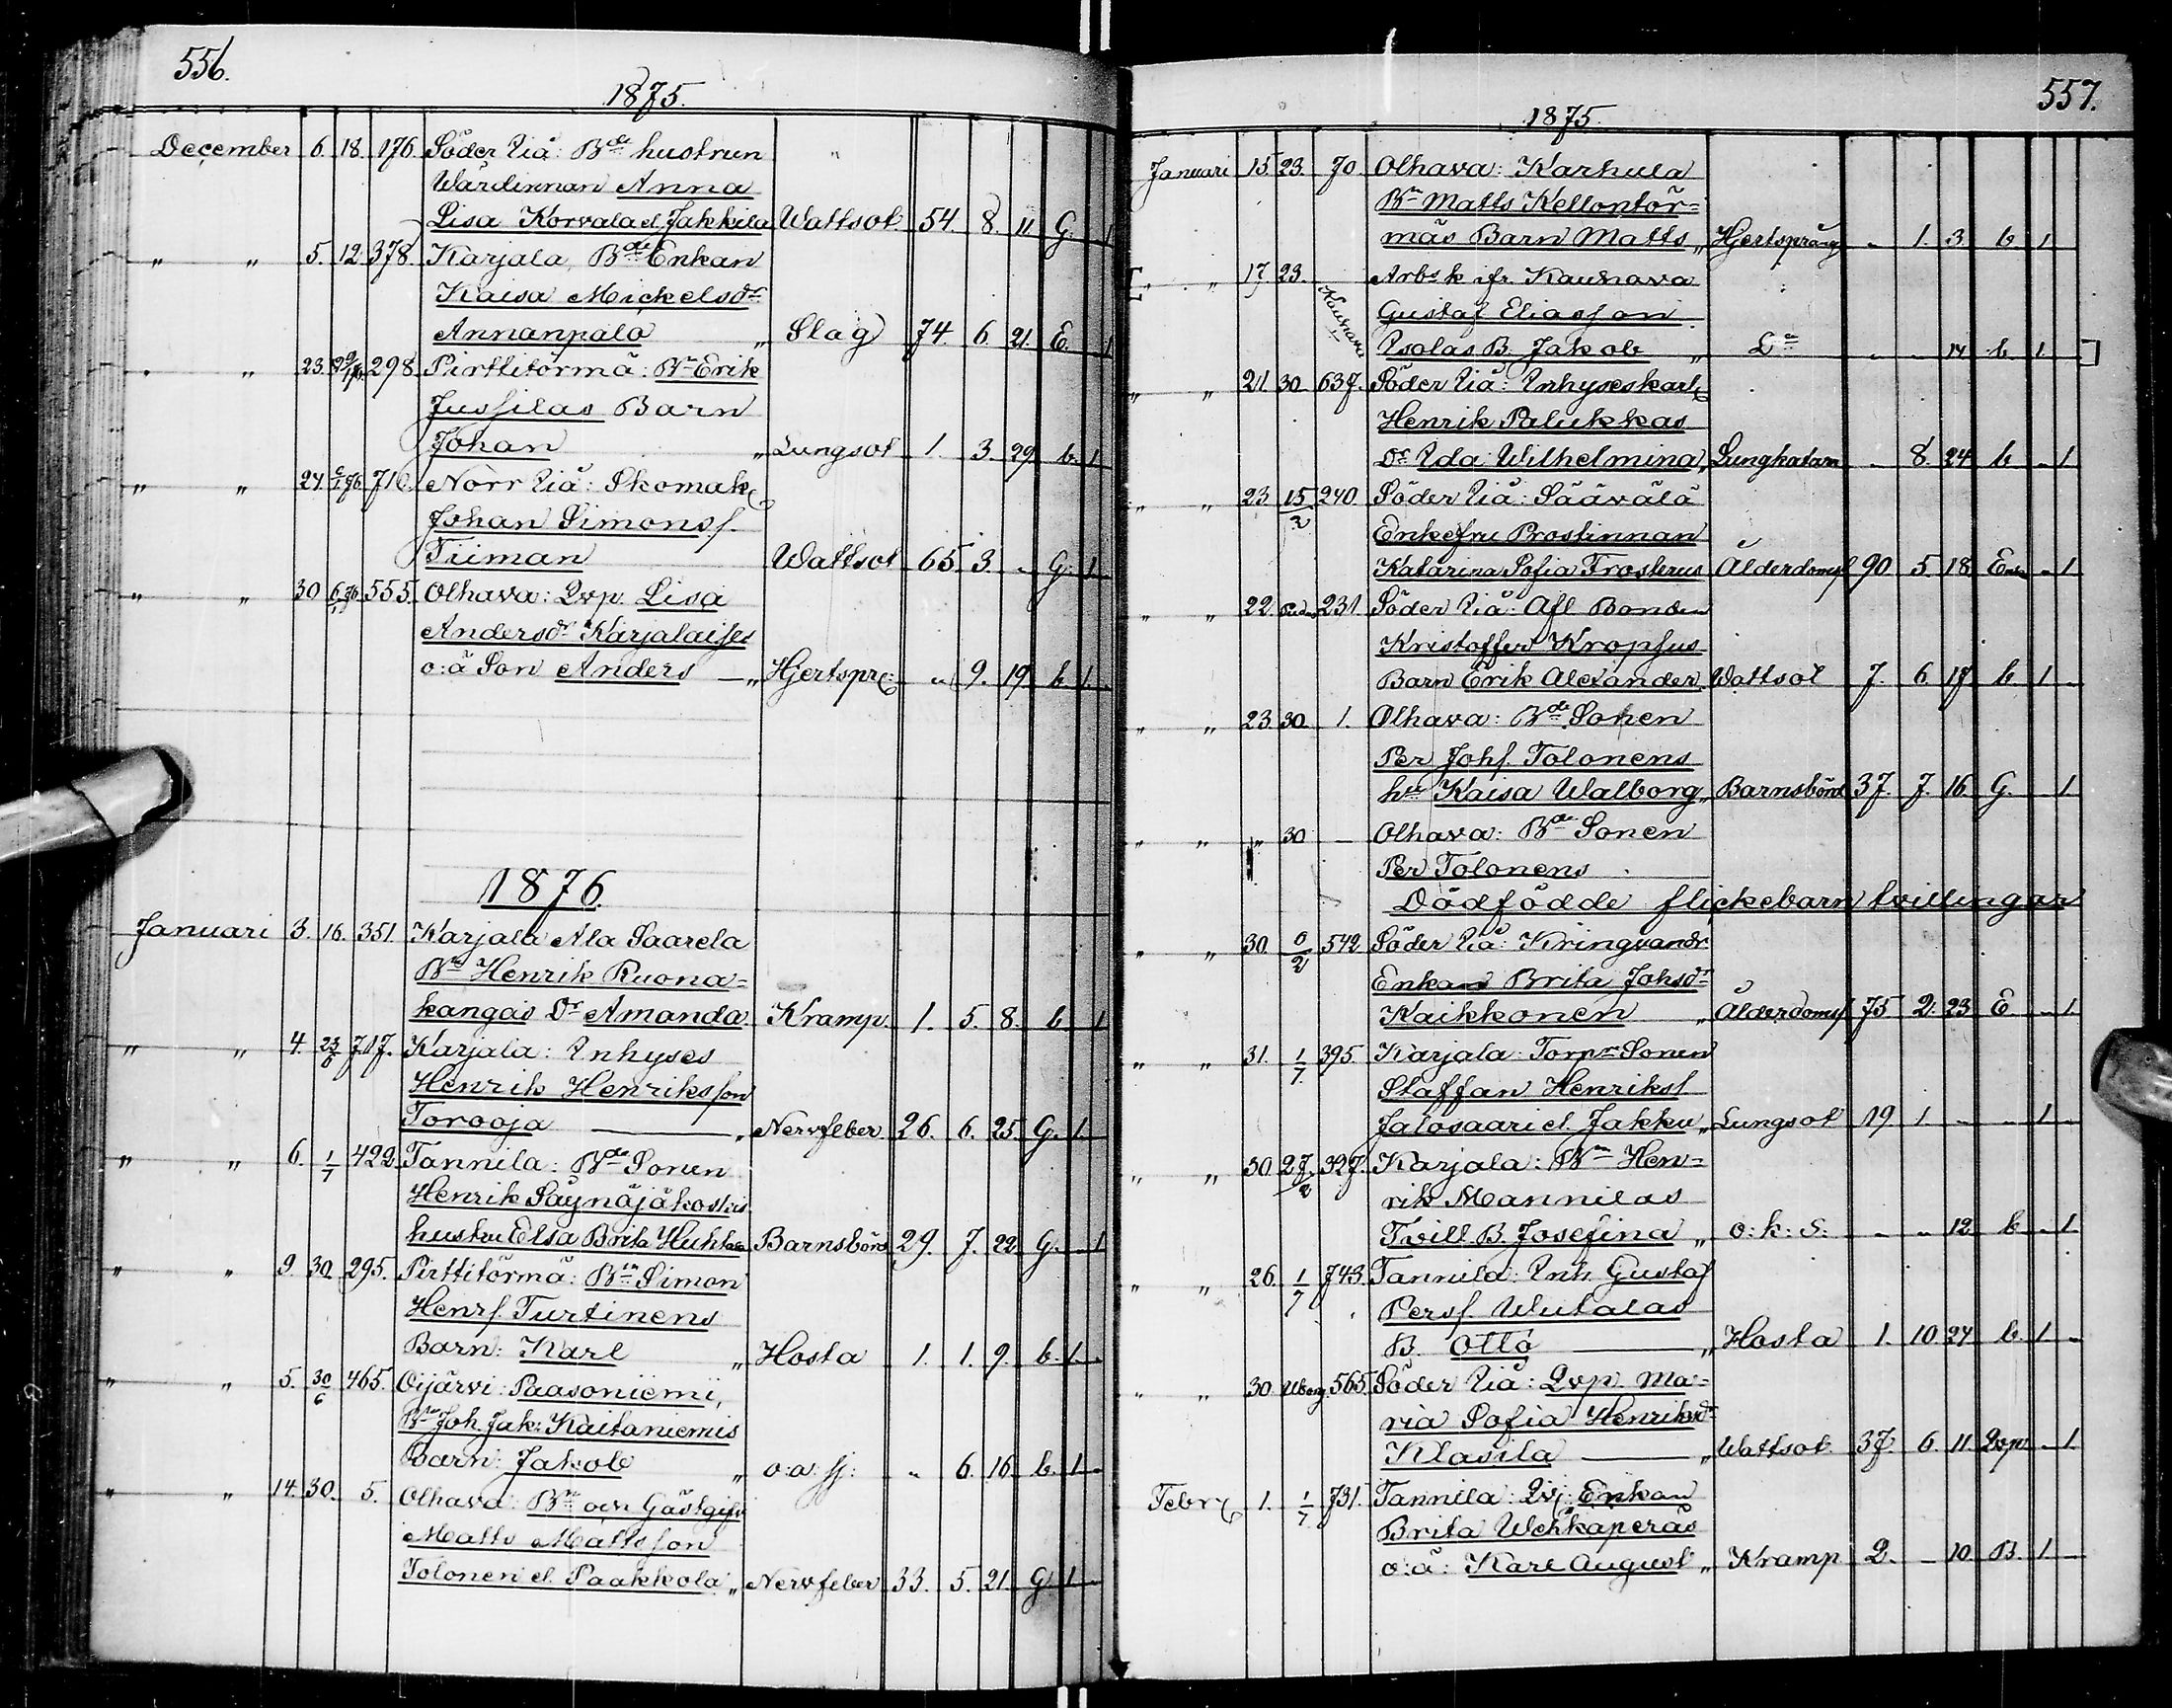 556.
1875.
December 6. 18. 176. Söder Iiå: Bde hustrun
Wärdinnan Anna
Lisa Korvala el. Jakkila Wattsot 54. 8. 11. G. 1
" " 5. 12. 378. Karjala, Bde Enkan
Kaisa Mickelsdr
Annanpalo " Slag 74. 6. 21. E. 1
" " 23. 298. Pirttitörmä: Bn Erik
Jussilas Barn
Johan " Lungsot 1. 3. 29. b. 1
" " 24. 716. Norr Iiå: Skomak
Johan Simonss.
Tiiman Wattsot 65. 3. - G. 1
" " 30 6/1 76 555. Olhava: Qvp. Lisa
Andersdr Karjalaises
o:ä Son Anders — " Hjertspr: " 9. 19. b. 1.
1876.
Januari 3. 16. 351. Karjala Ala Saarela
Bn Henrik Ruona=
kangas Dr Amanda Kramp 1. 5. 8. b 1
" " 4. 23/6 717. Karjala: Inhyses
Henrik Henriksson
Torooja — " Nervfeber 26. 6. 25. G. 1.
" " 6. 1/7 422. Tannila: Bde Sonen
Henrik Säynäjäkoskis
hustru Elsa Brita Huhta Barnsbörd 29. 7. 22 G. 1
" " 9 30. 295. Pirttitörmä: Bn Simon
Henrs. Turtinens
Barn: Karl " Hosta 1. 1. 9. b. 1.
" " 5. 30/6 465. Oijärvi: Paasoniemi,
Bn Joh. Jak: Kaitaniemis
Barn: Jakob " o:a: sj: " 6. 16. b. 1
" " 14. 30. 5. Olhava: Bn och Gästgifv
Matts Mattsson
Tolonen el. Paakkola " Nervfeber 33. 5. 21. G. 1.
557.
1875.
Januari 15. 23. 70 Olhava: Karhula
Bn Matts Kellontör=
mäs Barn Matts " Hjertspräng " 1. 3. b. 1
" " 17. 23. Kauhava Arbsk. ifr. Kauhava
Gustaf Eliasson
Isolas B. Jakob " Do " " 14 b. 1.
" " 21 30. 637. Söder Iiå: Inhyseskarl
Henrik Palukkas
Dr Ida Wilhelmina " Lungkatarr " 8. 24 b " 1
" " 23. 15/2 240. Söder Iiå: Säävälä
Enkefru Prostinnan
Katarina Sofia Frosterus Ålderdomsf 90 5. 18. Enka " 1
" " 22. 231. Söder Iiå: Afl Bonden
Kristoffer Kropsus
Barn Erik Alexander Wattsot 7. 6. 17 b. 1
" " 23. 30. 1. Olhava: Bde Sonen
Per Johs. Tolonens
hu Kaisa Walborg " Barnsbörd 37. 7. 16. G. 1
" " " 30 — Olhava: Bde Sonen
Per Tolonens
Dödfödde flickebarn tvillingar
" " 30. 6/2 542 Söder Iiå: Kringvandr.
Enkan Brita Johsdr
Kaikkonen " Ålderdomsf 75 2. 23 E " 1
" " 31. 1/7 395. Karjala: Torpr Sonen
Staffan Henrikss
Jalosaari el. Jakku " Lungsot 19 1 - - 1
" " 30. 27/2 327. Karjala: Bn Hen=
rik Mannilas
Tvill. B. Josefina " o: k: s: " " 12. b. " 1
" " 26. 1/7 743. Tannila: Inh. Gustaf
Perss. Wiitalas
B. Otto — " Hosta 1. 10 24 b. 1.
" " 30 Uborg 565. Söder Iiå: Qvp. Ma=
ria Sofia Henriksdr
Klasila — " Wattsot 37 6. 11 Qvp " 1
Febr 1. 1/7 731. Tannila: Qvj: Enkan
Brita Wehkaperäs
o:ä: Karl August " Kramp 2. - 10. B. 1.